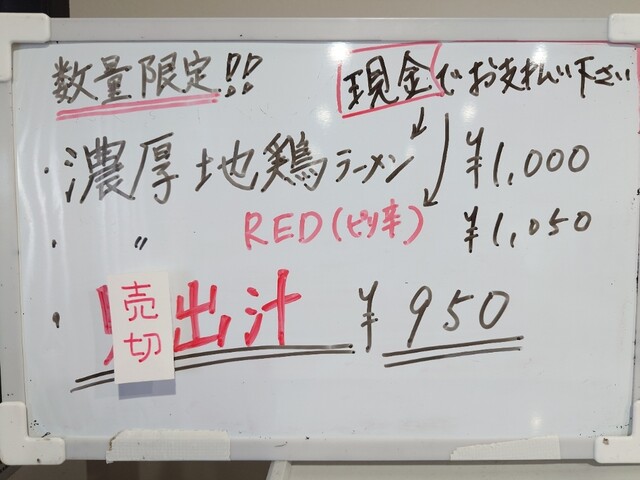 数量限定!!
現金でお支払い下さい
・濃厚地鶏ラーメン ¥1,000
・ 〃 RED(ピリ辛) ¥1,050
・ 出汁 ¥950
売切